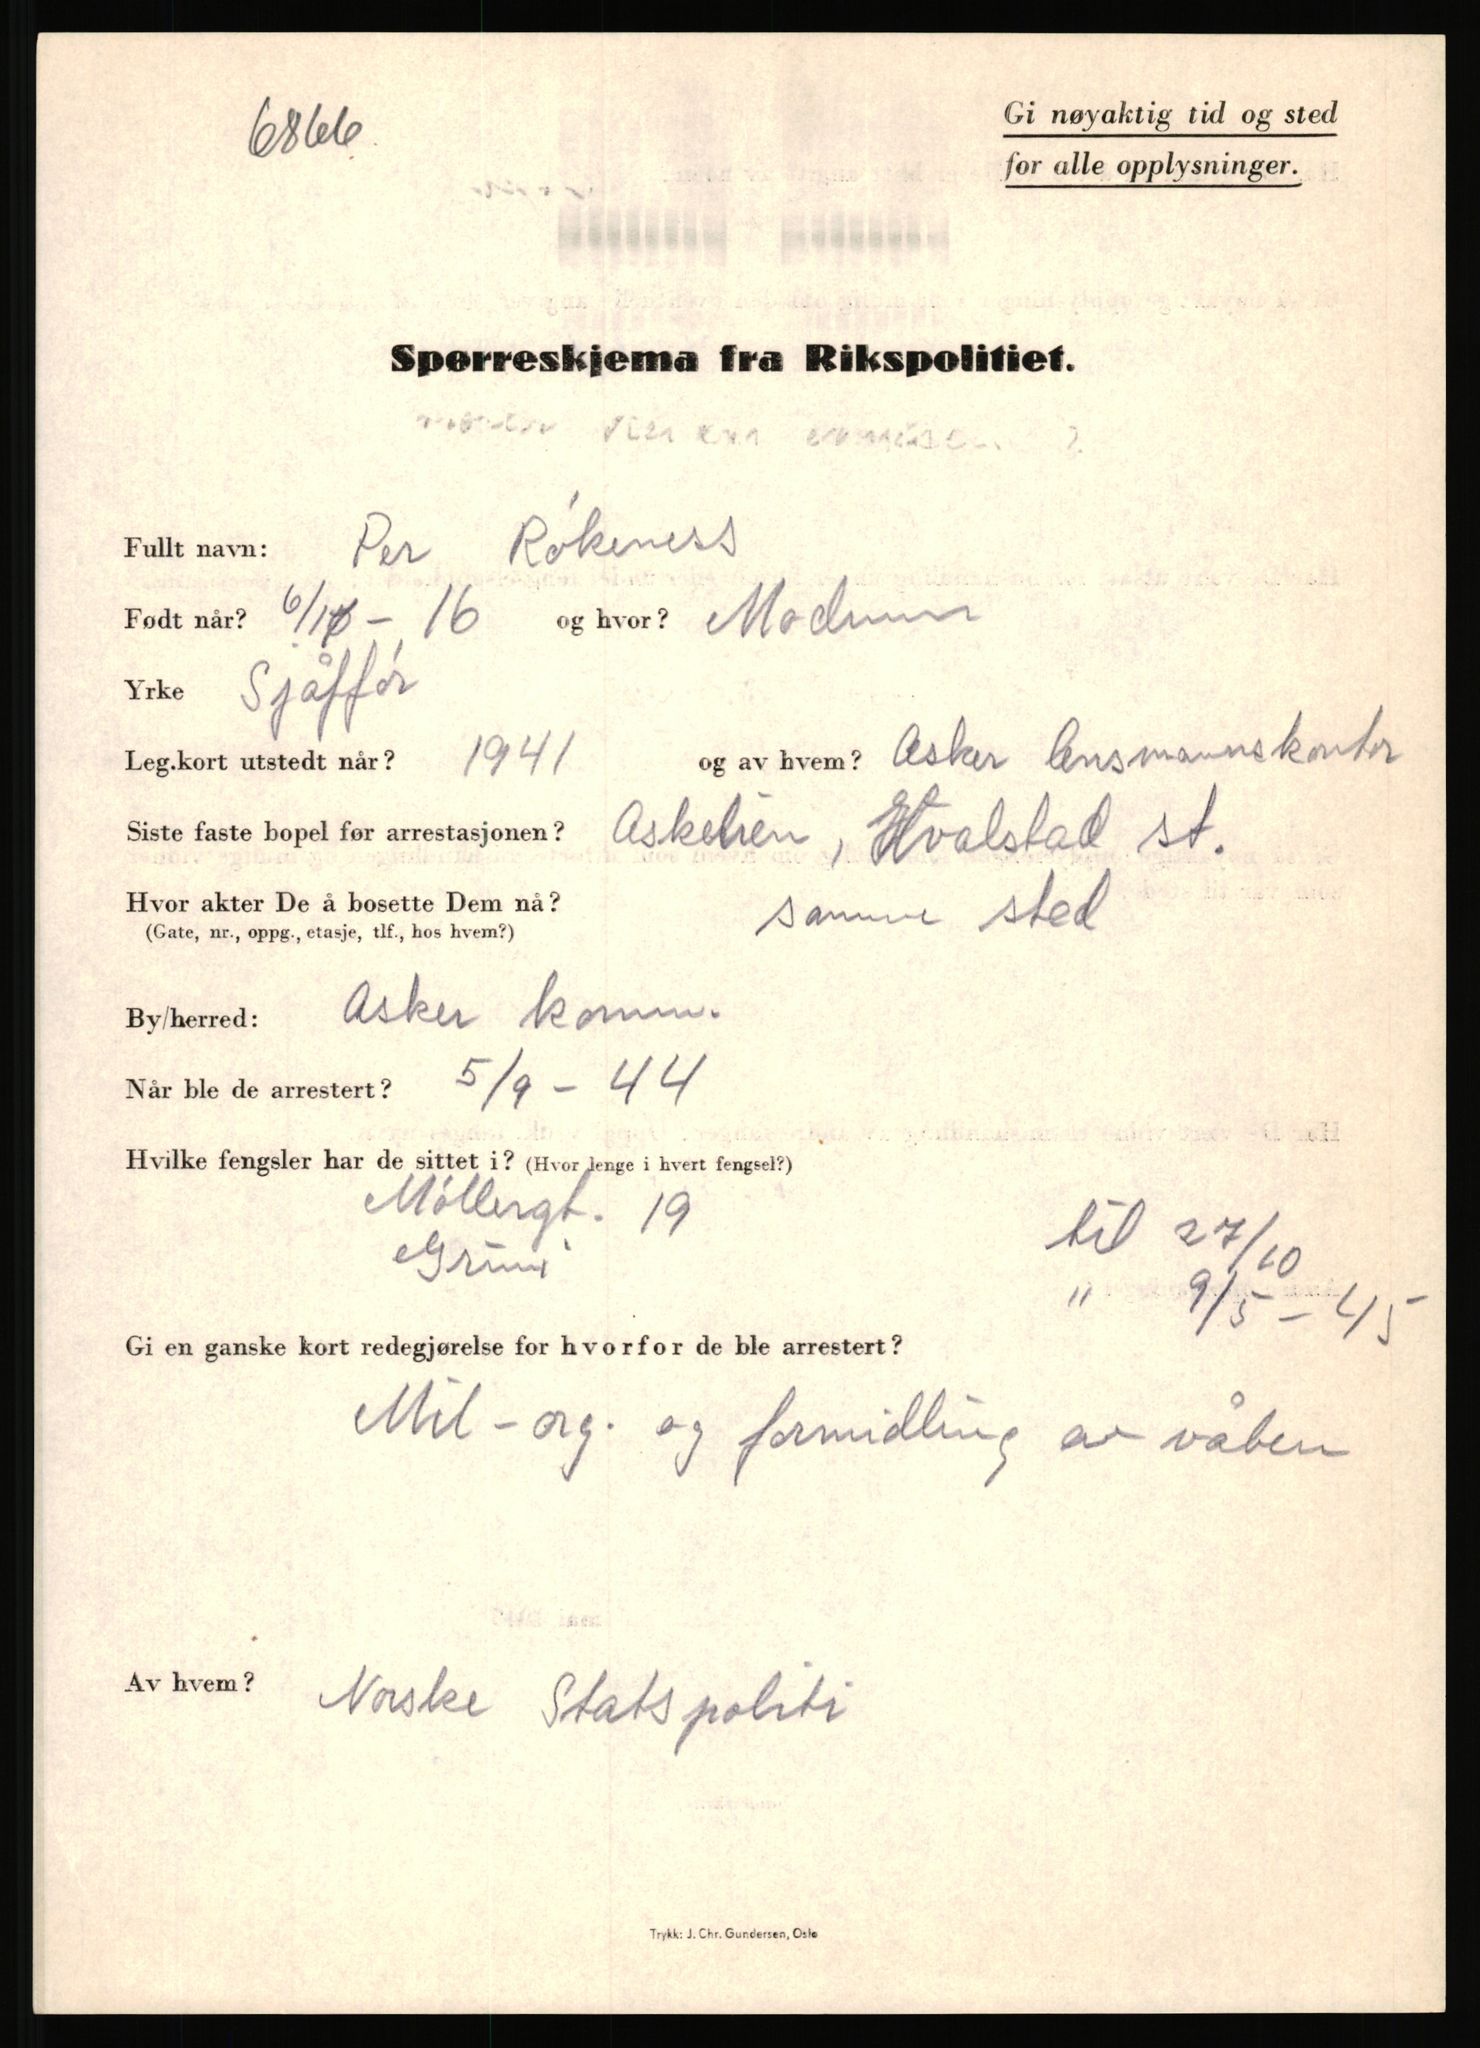 6866
Gi nøyaktig tid og sted
for alle opplysninger.
Spørreskjema fra Rikspolitiet.
Fullt navn: Per Rókeness
Født når? 6/10 - 16 og hvor? Modum
Yrke Sjåffór
Leg.kort utstedt når? 1941 og av hvem? Asker lensmannskontor
Siste faste bopel før arrestasjonen? Askelien, Hvalstad st.
Hvor akter De å bosette Dem nå? samme sted
(Gate, nr., oppg., etasje, tlf., hos hvem?)
By/herred: Asker komm.
Når ble de arrestert? 5/9 - 44
Hvilke fengsler har de sittet i? (Hvor lenge i hvert fengsel?)
Móllergt. 19 til 27/10
Grini " 9/5 - 45
Gi en ganske kort redegjørelse for hvorfor de ble arrestert?
Mil-org. og formidling av våben
Av hvem? Norske Statspoliti
Trykk: J. Chr. Gundersen, Oslo